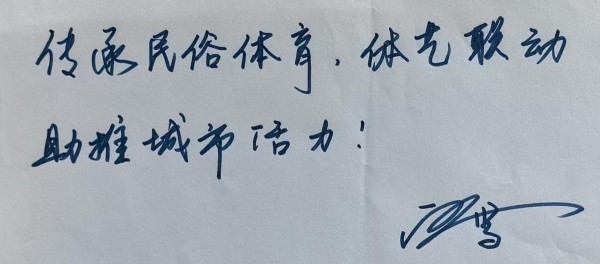 传承民俗体育，体艺联动
助推城市活力！